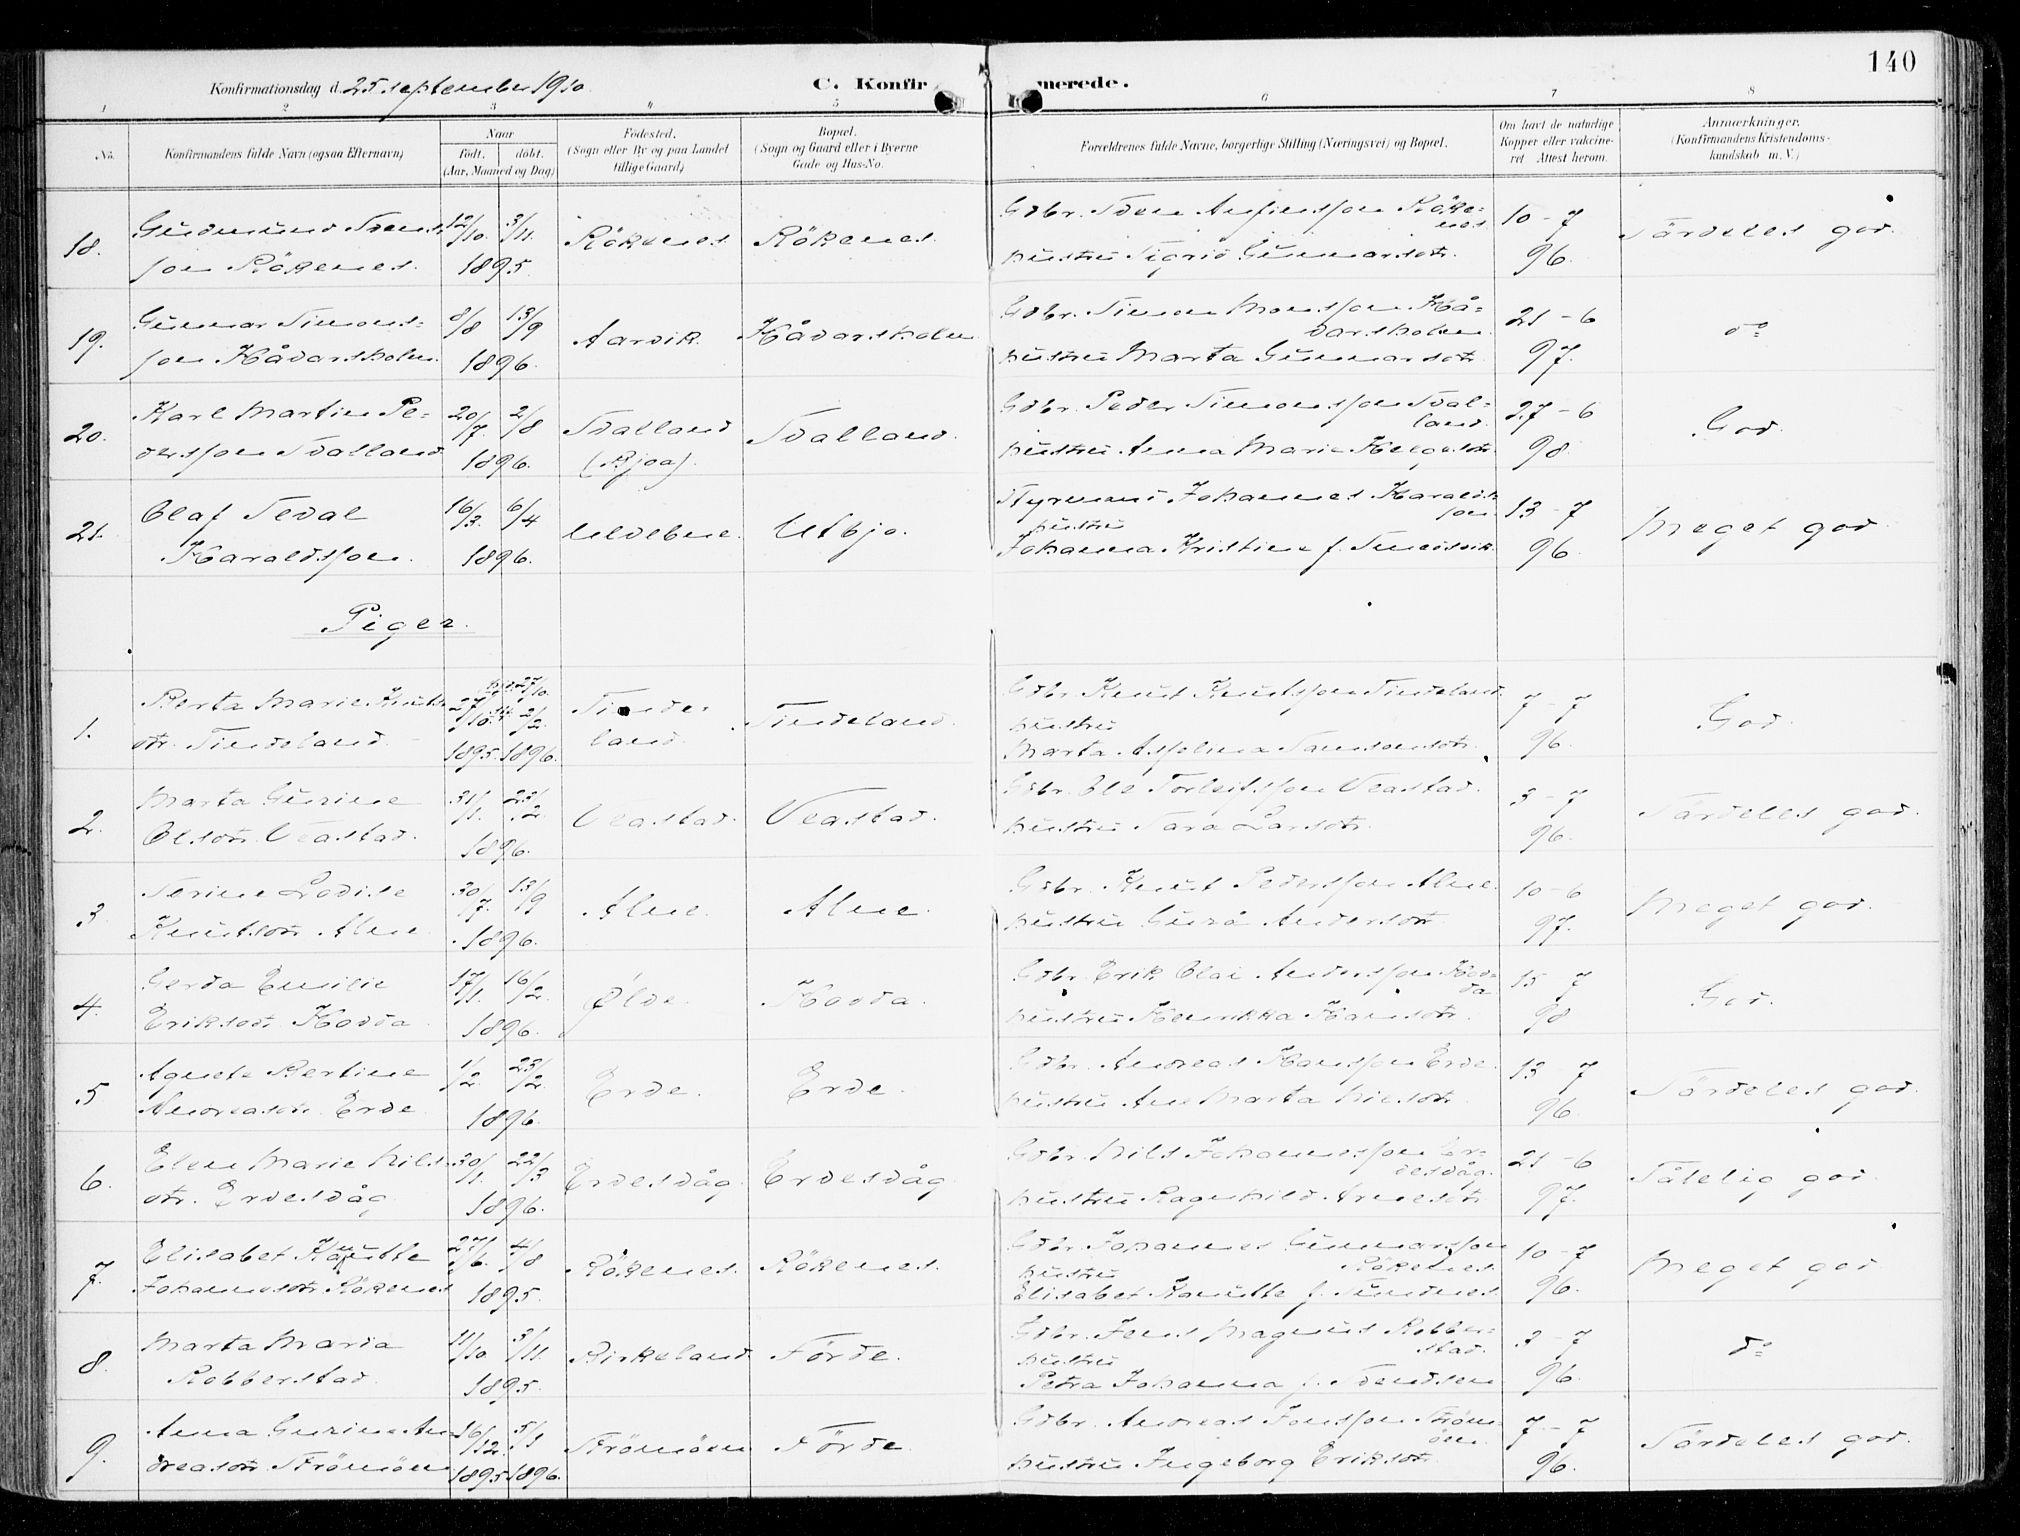 140
Konfirmationsdag d. 25. september 1910.
C. Konfirmerede.
1 2 3 4 5 6 7 8
No.
Konfirmandens fulde Navn (ogsaa Efternavn)
Naar
født. døbt.
(Aar, Maaned og Dag)
Fødested.
(Sogn eller By og paa Landet
tillige Gaard)
Bopæl.
(Sogn og Gaard eller i Byerne
Gade og Hus-No.
Forældrenes fulde Navne, borgerlige Stilling (Næringsvei) og Bopæl.
Om havt de naturlige
Kopper eller vakcine-
ret Attest herom.
Anmærkninger.
(Konfirmandens Kristendoms-
kundskab m. V.)
18. Gudmund Svens-
son Rökenes. 12/10. 3/11. 1895. Rökenes Rökenes. Gdbr. Sven Anfinsson Röke-
nes
hustru Sigrid Gunnarsdtr. 10-7 96. Særdeles god.
19. Gunnar Simons-
son Håvarsholm. 8/8 13/9 1896. Aarvik. Håvarsholm Gdbr. Simon Monsson Hå-
varsholm.
hustru Marta Gunnarsdtr. 21-6 97. do
20. Karl Martin Pe-
dersson Svalland 20/7. 2/8 1896. Svalland
(Bjoa). Svalland. Gdbr. Peder Simonsson Sval-
land.
hustru Anna Marie Helgesdtr. 27-6 98. God.
21. Olaf Sedal
Haraldsson. 16/3. 6/4 1896. Utbjo. Styrmand Johannes Haralds-
son.
hustru
Johanna Kristine f. 13-7 96. Meget god
Piger.
1. Berta Marie Knuts-
dtr. Tindeland. 27/10. 2/2. 1895. 1896. Tinde-
land. Tindeland. Gdbr. Knut Knutsson Tindeland.
hustru
Marta Samsonsdtr. 7-7 96. God.
2. Marta Gurine
Olsdtr. Veastad. 31/1. 23/2. 1896. Veastad. Veastad. Gdbr. Ole Torleifsson Veastad.
hustru Sara Larsdtr. 3-7 96. Særdeles god.
3. Serine Lovise
Knutsdtr. Alne 30/7. 13/9 1896. Alne. Alne. Gdbr. Knut Pedersson Alne.
hustru Guro Andersdtr. 10-6 97. Meget god.
4. Gerda Emilie
Eriksdtr. Hovda. 17/1. 16/2. 1896. Ølve. Hovda. Gdbr. Erik Olai Andersson Hov-
da
hustru Henrikka Hansdtr. 15-7 98 God.
5 Agnete Bertine
Andreasdtr. Erde. 1/2. 23/2. 1896. Erde. Erde. Gdbr. Andreas Hansson Erde.
hustru Ane Marta Nilsdtr. 13-7 96. Særdeles god.
6. Elen Marie Nils-
dtr. Erdesdåg. 30/1. 22/3 1896. Erdesdåg. Erdesdåg. Gdbr. Nils Johannesson Er-
desdåg.
hustru Ragnhild Arnesdtr. 21-6 97. Tålelig god.
7. Elisabet
Johannesdtr. Rökenes 27/6. 4/8 1895. Rökenes. Rökenes. Gdbr. Johannes Gunnarsson
Rökenes.
hustru
Elisabet f. 10-7 96. Meget god
8. Marta Maria
Robberstad. 11/10. 3/11. 1895. Birkeland. Förde. Gdbr. Jens Magnus Robber-
stad.
hustru
Petra Johanna f. Svendsen 3-7 96. do
9. Anna Gurine An-
dreasdtr. Strömöen 16/12. 5/1 1895 1896. Strömöen Förde. Gdbr. Andreas Jonsson Ström-
öen.
hustru Ingeborg Eriksdtr. 7-7 96. Særdeles god.